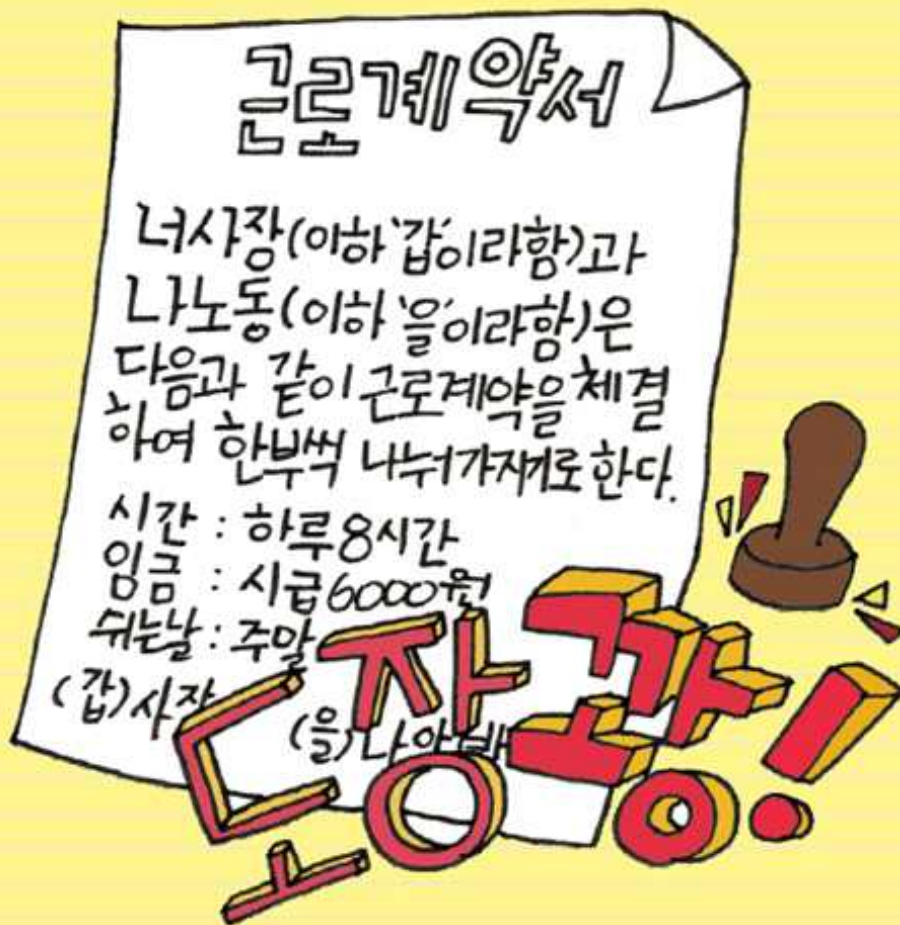 근로계약서
너사장(이하 '갑'이라함)과
나노동(이하 '을'이라함)은
다음과 같이 근로계약을 체결
하여 한부씩 나눠가지기로 한다.
시간 : 하루 8시간
임금 : 시급 6000원
쉬는날 : 주말
(갑) 사장
(을) 나알바
도장 꽝!